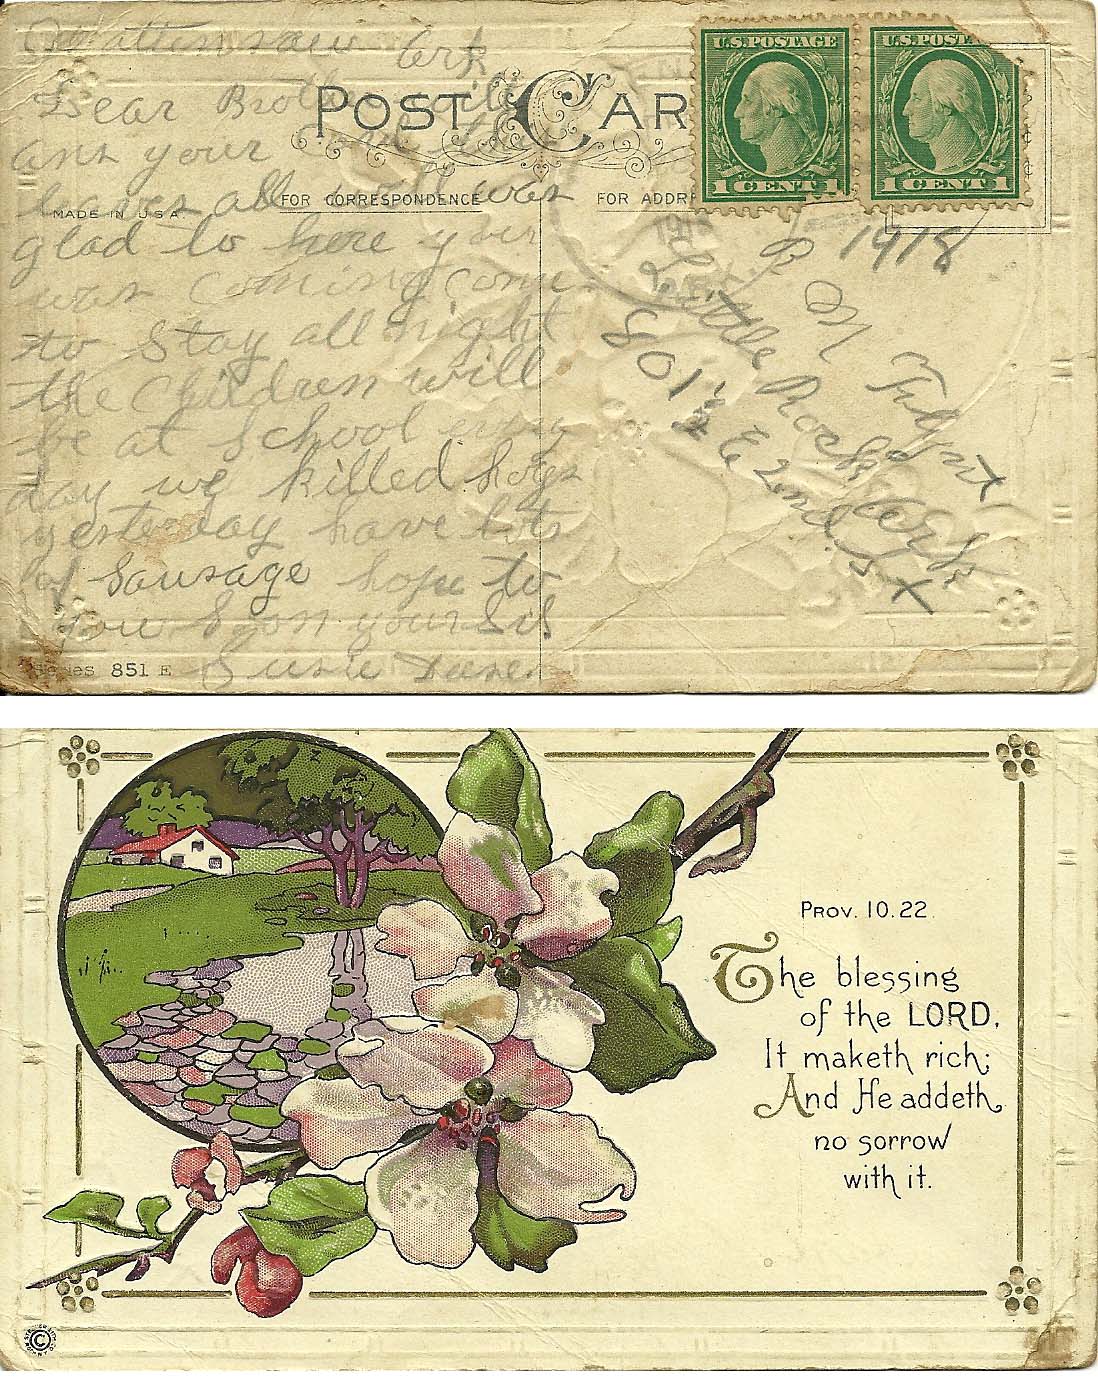 Mattensaw Ark
Dear Brother will
ans your
leaves all well was
glad to here your
was coming come
to stay all night
the Children will
be at School every
day we killed hogs
yesterday have lots
of Sausage hope to
you Soon your Sis
Susie
POST CAR
FOR CORRESPONDENCE
FOR ADDR
MADE IN USA
Series 851 E
U.S. POSTAGE
1 CENT 1
U.S. POSTA
1 CENT 1
1918
R M
Little Rock Ark
801 ½ E 2nd st
PROV. 10.22.
The blessing
of the LORD,
It maketh rich;
And He addeth
no sorrow
with it.
©